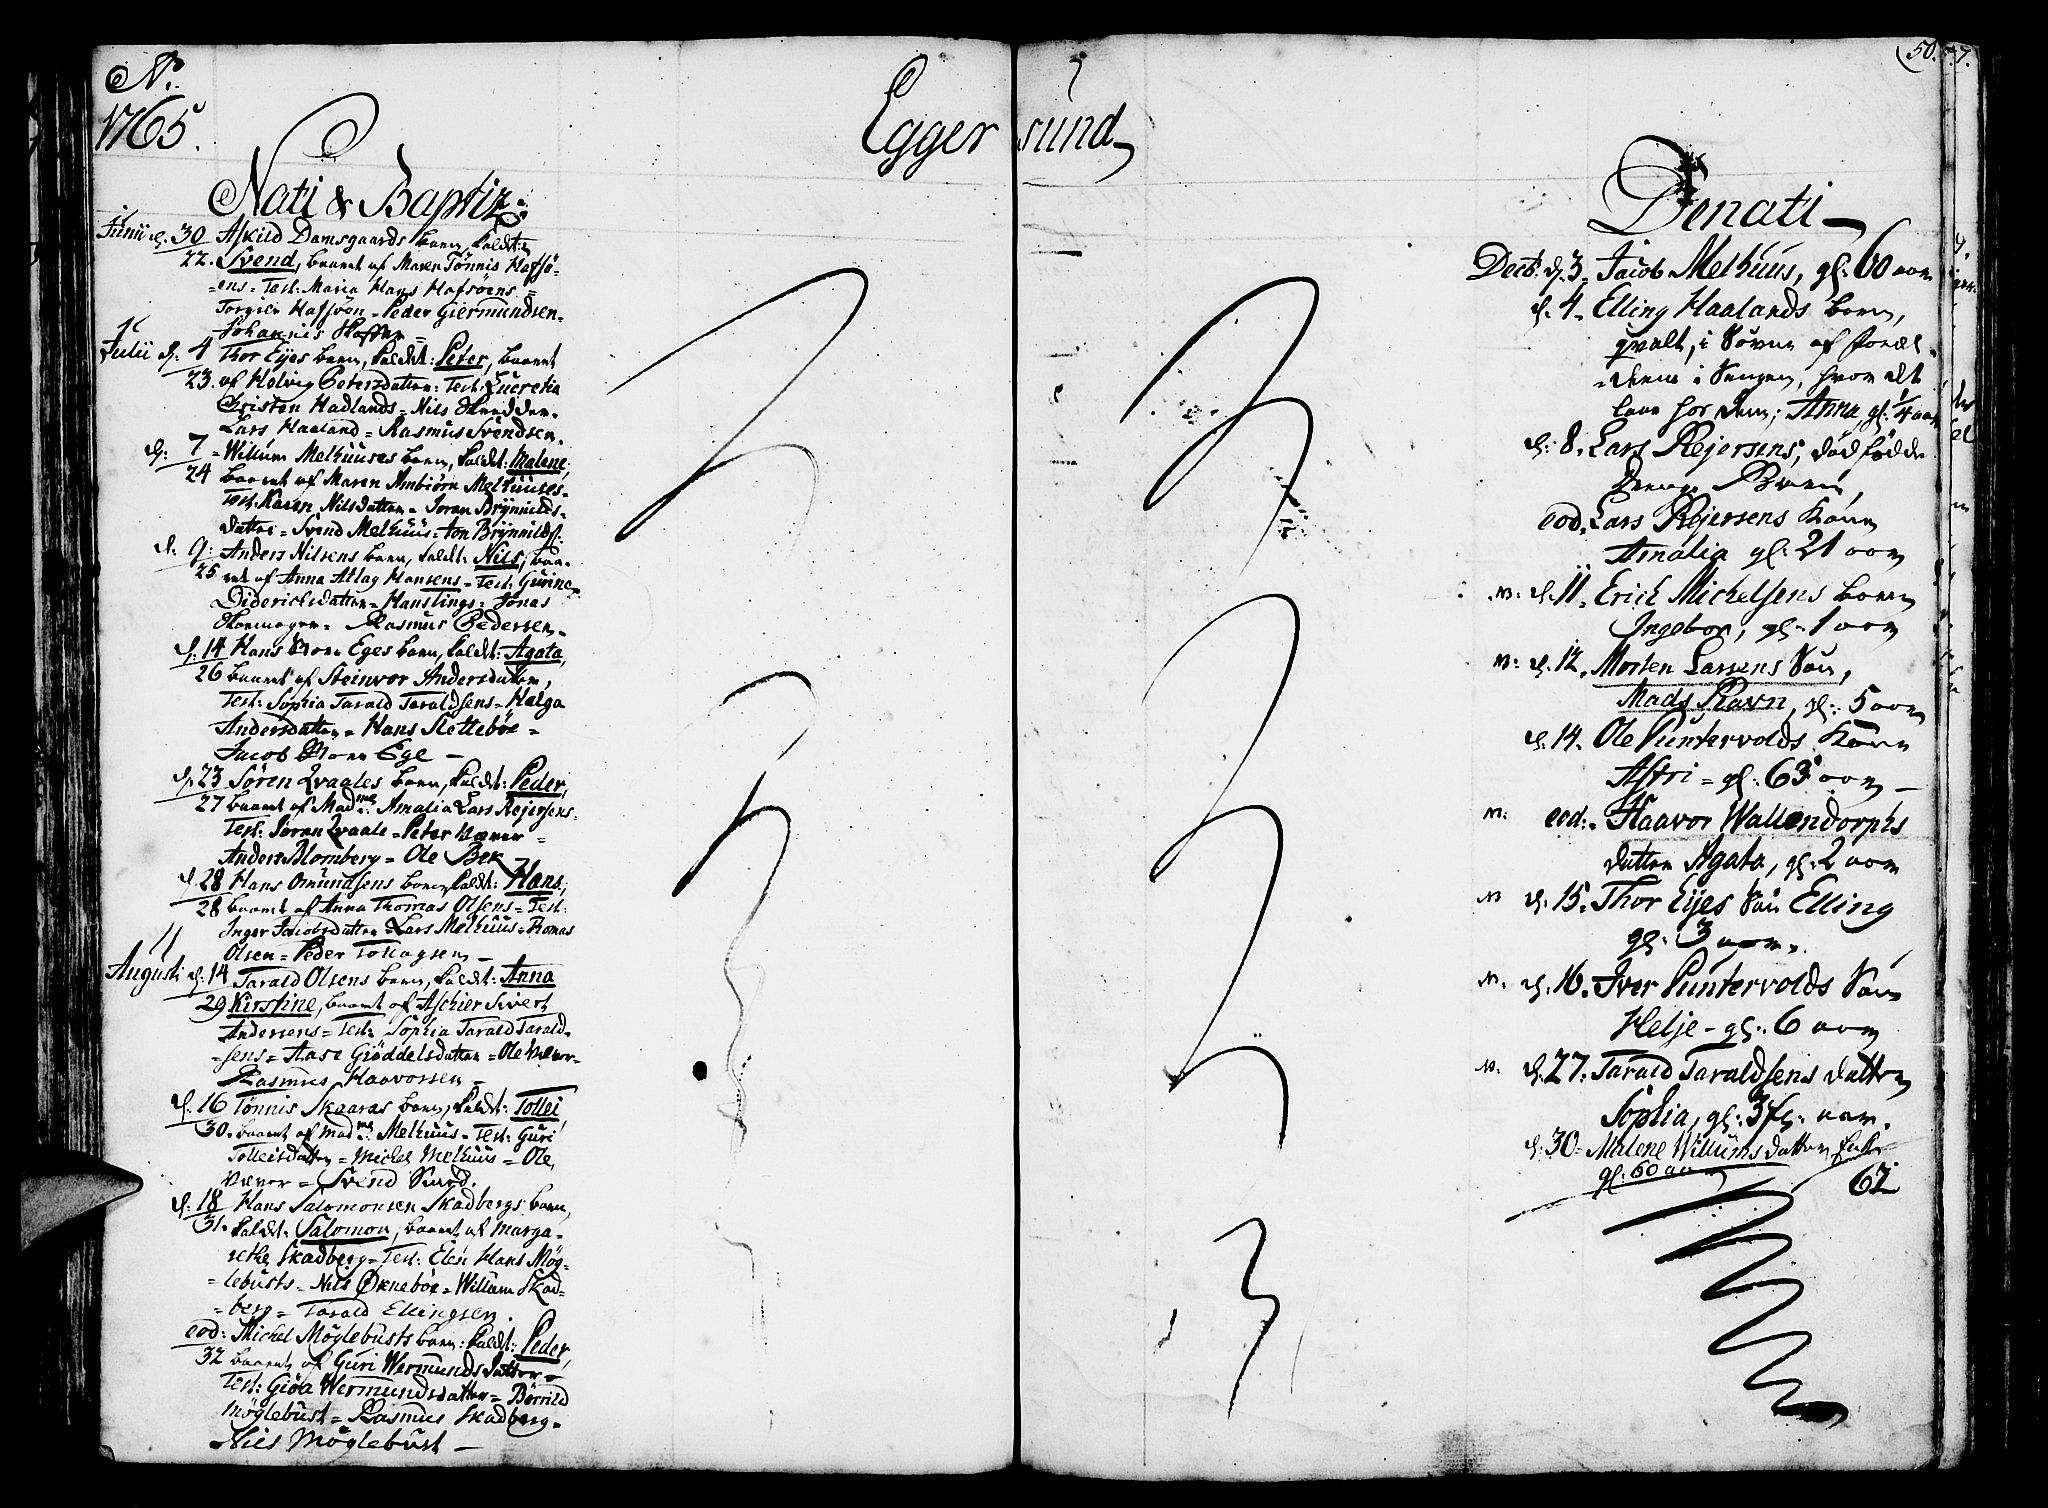 N.
1765.
Egger sund
50.
Nati & Baptiz:
Junii d. 30 Askild Damsgaards barn, kaldt:
22. Svend, baaret af Maren Tönnis Hafsö-
=ens= Test: Maria Hans Hafsöens=
Torgils Hafsöen= Peder Giermundsen=
Johannis
Julii d: 4 Thor Eyes barn, kaldt: Peter, baaret
23. af Helvig Petersdatter: Test: Lucretia
Christen Hadlands= Nils
Lars Haaland= Rasmus Svendsen.
d: 7 = Willum Melhuuses barn, kaldt: Malene,
24 baaret af Maren Ambiörn Melhuuses=
Test: Karen Nilsdatter= Joran Brynnilds-
datter= Svend Melhuus= Jon Brynnilds:
d. 9: Anders Nilsens barn, kaldt: Nils, baa-
25 ret af Anna Atlag Hansens= Test: Gurina
Diderichsdatter= Hans Tings= Jonas
Rasmus Pedersen.
d: 14 Hans Eges barn, kaldt: Agata,
26 baaret af Steinvor Andersdatter,
Test: Sophia Tarald Taraldsens= Helga
Andersdatter= Hans Sletteböe=
Jacob Ege –
d. 23 Sören Qvaales barn, kaldt: Peder,
27 baaret af Madme Amalia Lars Rejersens=
Test: Söran Qvaale= Peter Væver=
Anders Blomberg= Ole Bek –
d. 28 Hans Omundsens barn, kaldt: Hans,
28 baaret af Anna Thomas Olsens= Test:
Inger Jacobsdatter= Lars Melhuus= Tomas
Olsen= Peder Tollagsen –
Augusti d: 14 Tarald Olsens barn, kaldt: Anna
29 Kirstine, baaret af Aschier Sivert
Andersens= Test: Sophia Tarald Tarald-
=sens= Aase Giöddelsdatter= Ole Væver-
Rasmus Haavorsen –
d. 16 Tönnis Skaaras barn, kaldt: Tollei,
30. baaret af Madme Melhuus= Test: Guri
Tolleisdatter= Michel Melhuus= Ole
Væver= Svend
d: 18 Hans Salomonsen Skadbergs barn,
31. kaldt: Salomon, baaret af Marga-
rethe Skadberg= Test: Elen Hans Mög-
=lebusts= Nils Ökneböe= Willum Skad-
=berg= Tarald Ellingsen.
eod: Michel Möglebusts barn: kaldt: Peder,
32 baaret af Guri Wermunds datter=
Test: Giöa Wermundsdatter= Börrild
Möglebust= Rasmus Skadberg=
Niels Möglebust –
Denati –
Decb: d. 3. Jacob Melhuus, gl: 60 aar
d. 4. Elling Haalands barn,
qvalt, i Sövne af foræl-
=drene i Sengen, hvor det
laae hos dem; Anna, gl: 1/4 aar
d: 8. Lars Rejersens, dödfödde
Drenge Barn,
eod. Lars Rejersens Kone
Amalia gl: 21 aar
N: d. 11. Erich Michelsens barn
Ingebor, gl: 1 aar
N: d. 12. Morten Larsens Sön,
Mads Ravn, gl: 5 aar
d. 14. Ole Puntervolds Kone
Astri= gl: 63 aar –
N: eod:. Haavor Wallendorphs
datter Agata, gl: 2 aar
N d. 15. Thor Eyes Sön Elling
gl: 3 aar.
N. d. 16. Iver Puntervolds Sön
Helje – gl: 6 aar
N. d. 27. Tarald Taraldsens datter
Sophia, gl: 3 aar.
d. 30= Malene Willumsdatter
gl: 60 aar
62